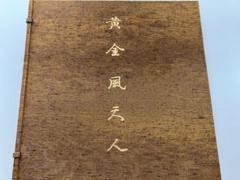 黄金風天人